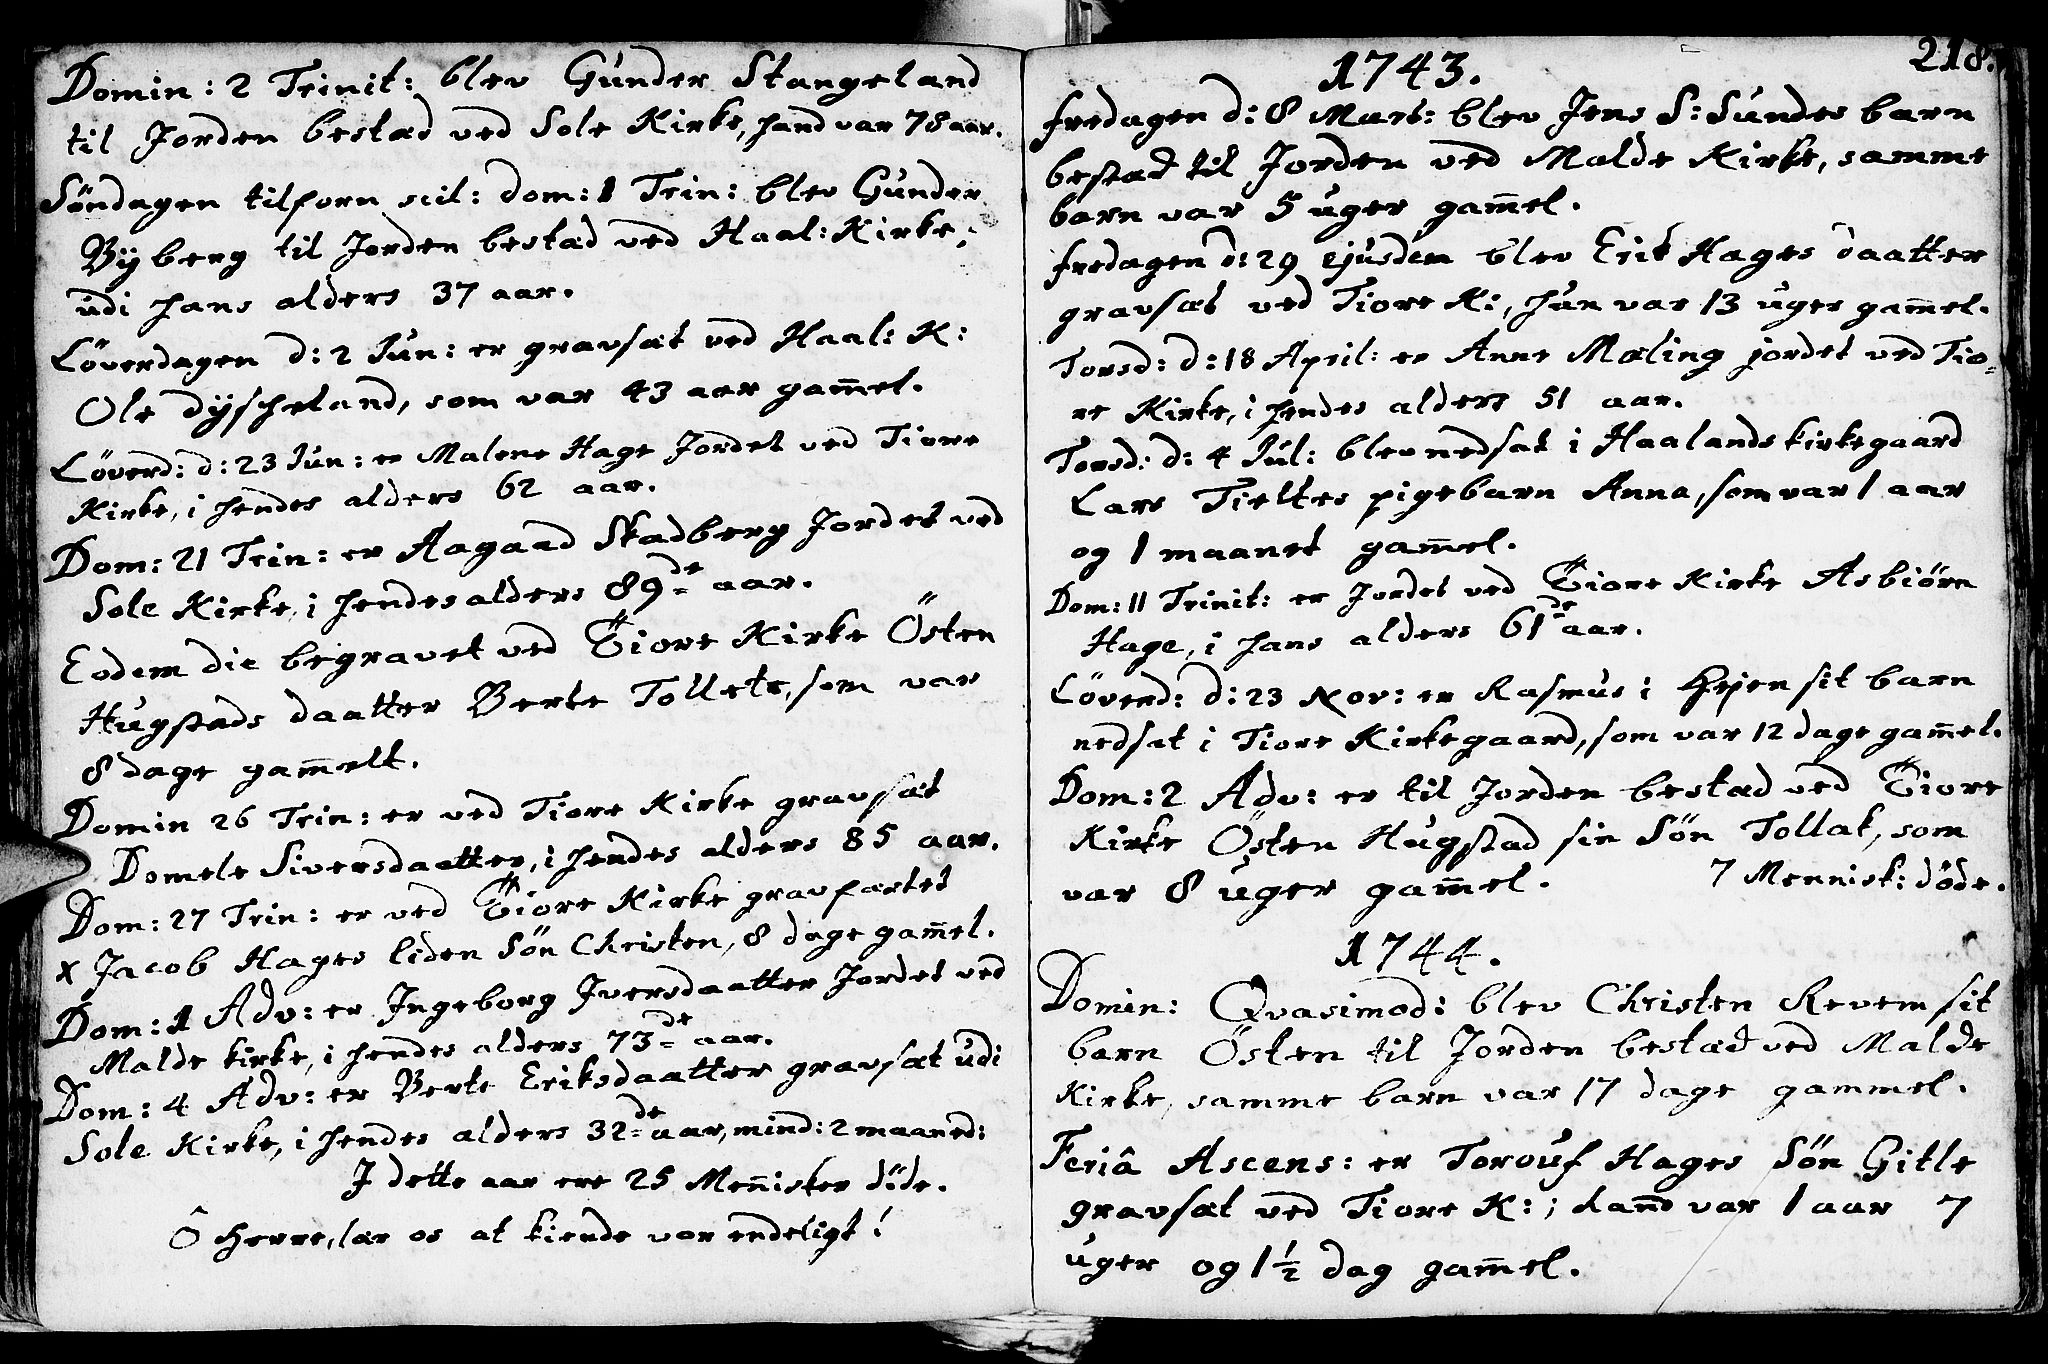 Domin: 2 Trinit: blev Gunder Stangeland
til Jorden bestæd ved Sole Kirke, hand var 78 aar.
Söndagen tilforn scil: dom: 1 Trin: blev Gunder
Byberg til Jorden bestæd ved Haal: Kirke,
udi hans alders 37 aar.
Löverdagen d: 2 Jun: er gravsæt ved Haal: K:
Ole dÿscheland, som var 43 aar gam̄el.
Löverd: d: 23 Jun: er Malene Hage Jordet ved Tiore
Kirke, i hendes alders 62 aar.
Dom: 21 Trin: er Aagaad Skadberg Jordet ved
Sole Kirke, i hendes alders 89de aar.
Eodem die begravet ved Tiore Kirke Östen
Hugstads daatter Berte Tollets, som var
8 dage gam̄elt.
Domin 26 Trin: er ved Tiore Kirke gravsæt
Domele Siversdaatter, i hendes alders 85 aar.
Dom: 27 Trin: er ved Tiore Kirke gravfæstet
x Jacob Hages liden Sön Christen, 8 dage gam̄el.
Dom: 1 Adv: er Ingeborg Iversdaatter Jordet ved
Malde kirke, i hendes alders 73de aar.
Dom: 4 Adv: er Berte Eriksdaatter gravsæt udi
Sole Kirke, i hendes alders 32de aar, mind: 2 maaned:
I dette aar ere 25 Men̄isker döde.
Ô Herre, lær os at kiende vor endeligt!
218.
1743.
fredagen d: 8 Mart: blev Jens S: Sundes barn
bestæd til Jorden ved Malde Kirke, samme
barn var 5 uger gam̄el.
fredagen d: 29 ejusdem blev Erik Hages daatter
gravsæt ved Tiore K:, hun var 13 uger gam̄el.
Torsd: d: 18 April: er Anne Mæling jordet ved Tio-
re Kirke, i hendes alders 51 aar.
Torsd: d: 4 Jul: blev nedsat i Haalands kirkegaard
Lars Tieltes pigebarn Anna, som var 1 aar
og 1 maanet gam̄el.
Dom: 11 Trinit: er Jordet ved Tiore Kirke Asbiörn
Hage, i hans alders 61de aar.
Löverd: d: 23 Nov: er Rasmus i Hejen sit barn
nedsat i Tiore Kirkegaard, som var 12 dage gam̄el.
Dom: 2 Adv: er til Jorden bestæd ved Tiore
Kirke Östen Hugstad sin Sön Tollak, som
var 8 uger gam̄el. 7 Mennisk: döde.
1744.
Domin: Qvasimod: blev Christen Revem sit
barn Östen til Jorden bestæd ved Malde
Kirke, samme barn var 17 dage gammel.
Feriâ Ascens: er Torouf Hages Sön Gitle
gravsæt ved Tiore K:; hand var 1 aar 7
uger og 1 1/2 dag gam̄el.